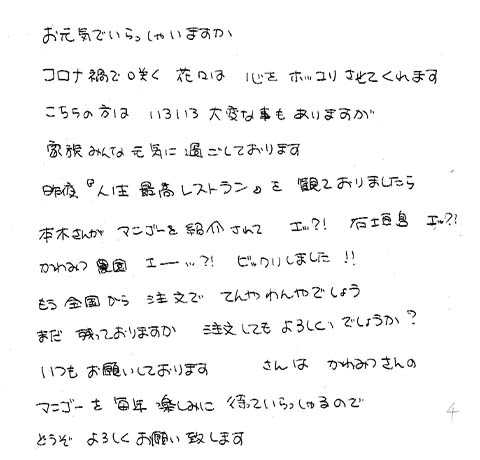 お元気でいらっしゃいますか
コロナ禍で咲く 花々は 心を ホッコリ させてくれます
こちらの方は いろいろ 大変な事も ありますが
家族 みんな 元気に 過ごしております
昨夜『人生 最高 レストラン』を 観て おりましたら
本木さんが マンゴーを 紹介 されて エッ?! 石垣島 エッ?!
かわみつ 農園 エー…?! ビックリしました !!
もう 全国から 注文で てんやわんやでしょう
まだ 残っておりますか 注文しても よろしいでしょうか?
いつも お願いしております さんは かわみつさんの
マンゴーを 毎年 楽しみに 待っていらっしゃるので
どうぞ よろしく お願い 致します
4